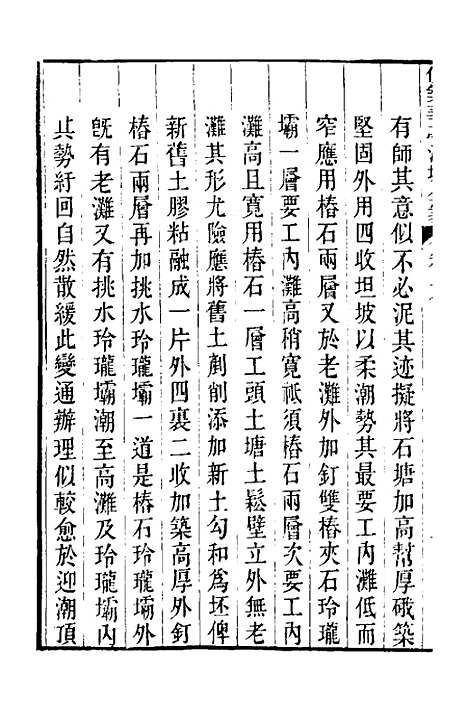 有師其意似不必泥其迹擬將石塘加高幫厚硪築
堅固外用四收坦坡以柔潮勢其最要工內灘低而
窄應用樁石兩層又於老灘外加釘雙樁夾石玲瓏
壩一層要工內灘高稍寬祗須樁石兩層次要工內
灘高且寬用樁石一層工頭土塘土鬆壁立外無老
灘其形尤險應將舊土剷削添加新土勾和為坯俾
新舊土膠粘融成一片外四裏二收加築高厚外釘
樁石兩層再加挑水玲瓏壩一道是樁石玲瓏壩外
旣有老灘又有挑水玲瓏壩潮至高灘及玲瓏壩內
其勢紆回自然散緩此變通辦理似較愈於迎潮頂